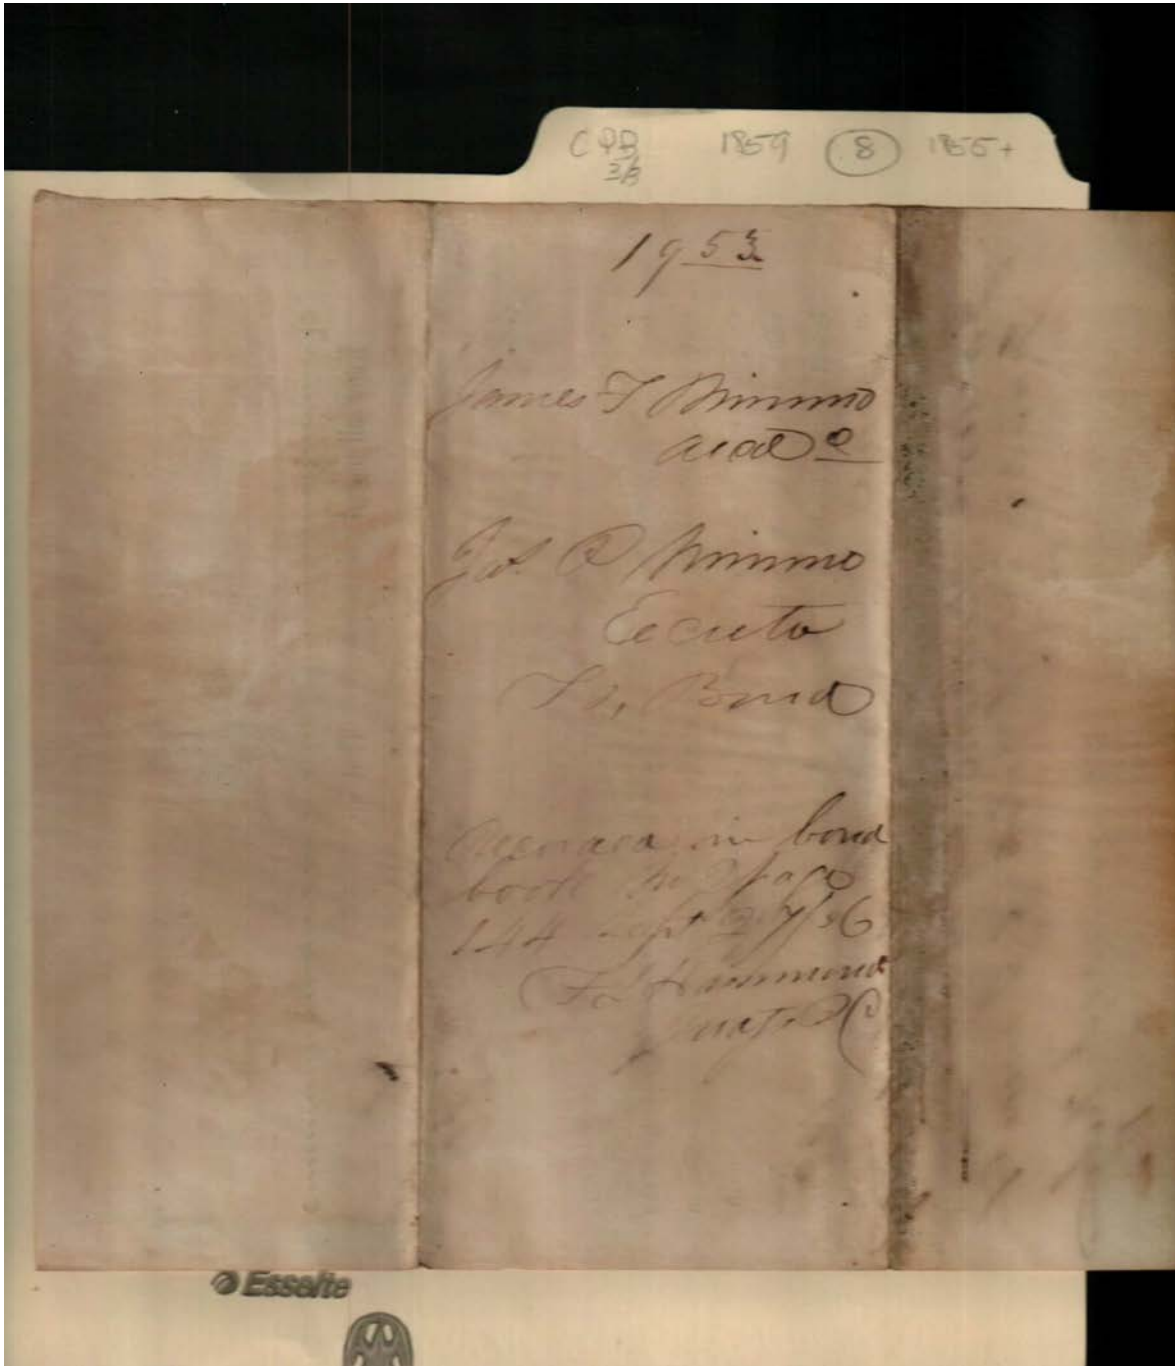 1859 8 1855+
1953
James T Nimmo
decd
Jas. R Nimmo
Ecceuto
Bond
Recorded in bond
book page
144 Sept 27/56
Hammond
Esselte